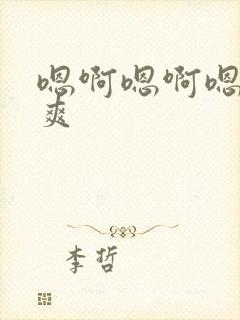 嗯啊嗯啊嗯
爽
李哲